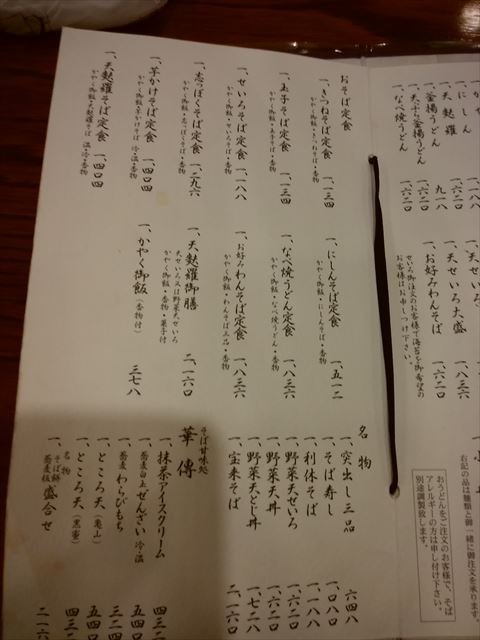 にしん 一、一八八
天麩羅 一、六二〇
釜揚うどん 九一八
一、天ぷら釜揚うどん 一、六二〇
一、なべ焼うどん 一、六二〇
一、天せいろ大盛 一、八三六
一、お好みわんそば 一、六二〇
せいろ御注文のお客様で海苔を御希望の
お客様はお申しつけ下さい。
右記の品は麺類と御一緒に御注文を承ります。
おうどんをご注文のお客様で、そば
アレルギーの方は申し付け下さい。
別途調製致します。
おそば定食
一、きつねそば定食 一、一三四
かやく御飯・きつねそば・香物
一、玉子そば定食 一、一三四
かやく御飯・玉子そば・香物
一、せいろそば定食 一、一八八
かやく御飯・せいろそば・香物
一、志っぽくそば定食 一、二九六
かやく御飯・志っぽくそば・香物
一、芋かけそば定食 一、四〇四
かやく御飯・芋かけそば 冷・温・香物
一、天麩羅そば定食 一、四〇四
かやく御飯・天麩羅そば 温・冷・香物
一、にしんそば定食 一、五一二
かやく御飯・にしんそば・香物
一、なべ焼うどん定食 一、八三六
かやく御飯・なべ焼うどん・香物
一、お好みわんそば定食 一、八三六
かやく御飯・わんそば三品・香物
一、天麩羅御膳 二、一六〇
天せいろ又は野菜天せいろ
かやく御飯・香物・菓子付
一、かやく御飯（香物付） 三七八
名物
一、突出し三品 六四八
一、そば寿し 一、〇八〇
一、利休そば 一、一八八
一、野菜天せいろ 一、六二〇
一、野菜天丼 一、六二〇
一、野菜天とじ丼 一、七二八
一、宝来そば 二、一六〇
そば甘味処
華傳
一、抹茶アイスクリーム 四三二
一、蕎麦白玉ぜんざい 冷・温
一、蕎麦わらびもち
一、ところ天（亀山）
一、ところ天（黒蜜） 四三二
一、名物 そば餅 蕎麦板 盛合せ